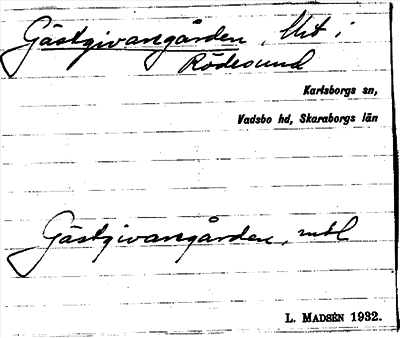 Gästgivaregården, Ht i
Rödesund
Karlsborgs sn,
Vadsbo hd, Skaraborgs län
Gästgivaregården, mtl
L. MADSÉN 1932.